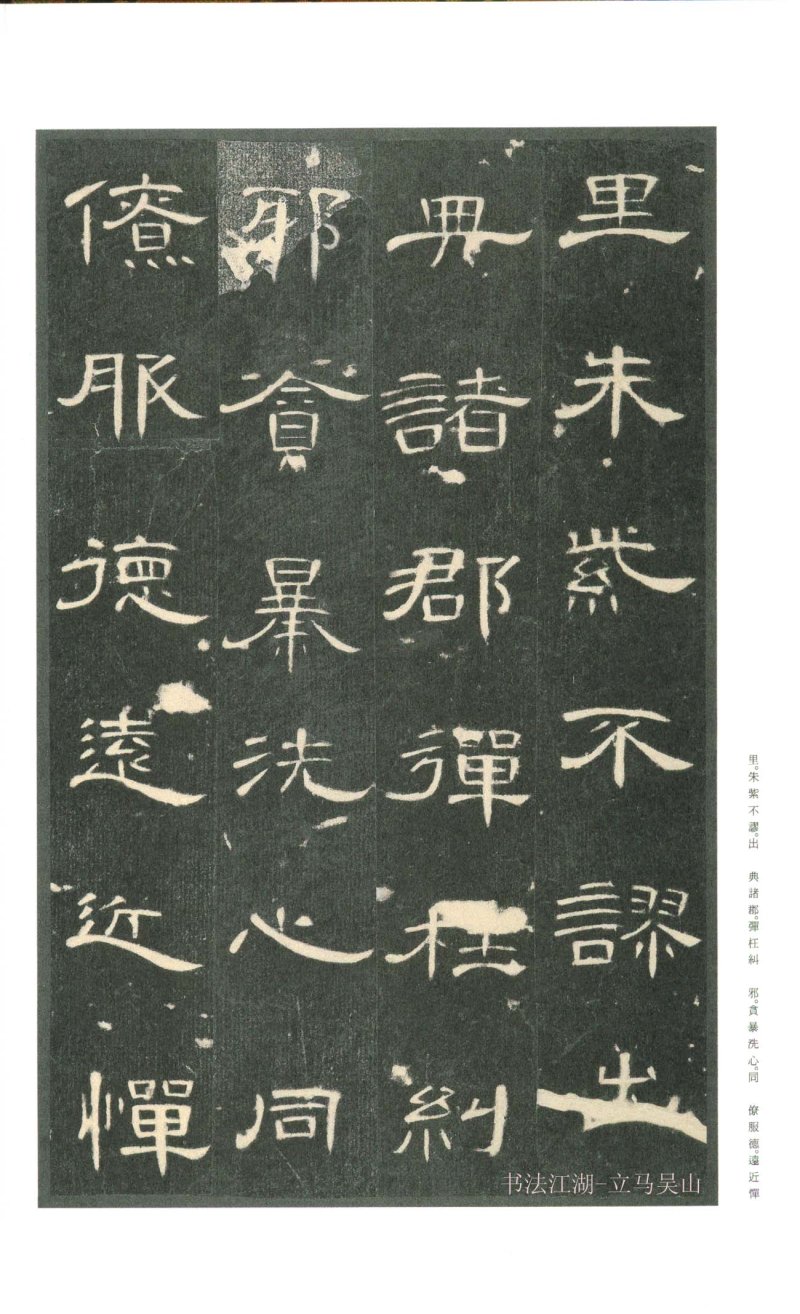 里朱紫不謬出
典諸郡彈枉糾
邪貪暴洗心同
僚服德遠近憚
里。朱紫不謬。出　典諸郡。彈枉糾　邪。貪暴洗心。同　僚服德。遠近憚
书法江湖-立马吴山